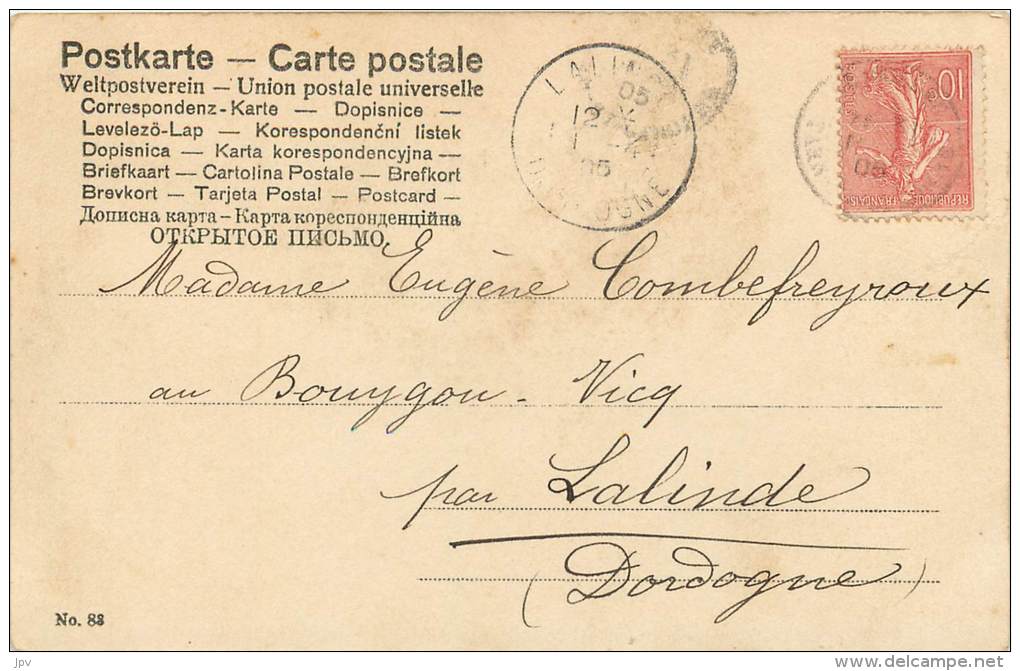 Postkarte — Carte postale
Weltpostverein — Union postale universelle
Correspondenz-Karte — Dopisnice —
Levelező-Lap — Korespondenční listek
Dopisnica — Karta korespondencyjna —
Briefkaart — Cartolina Postale — Brefkort
Brevkort — Tarjeta Postal — Postcard —
Дописна карта — Карта кореспонденційна
ОТКРЫТОЕ ПИСЬМО.
10
POSTES
REPUBLIQUE FRANÇAISE
LALINDE
12
05
DORDOGNE
05
Madame Eugène Combefreyroux
au Bouygou - Vicq
par Lalinde
(Dordogne)
No. 83
jpv
www.delcampe.net